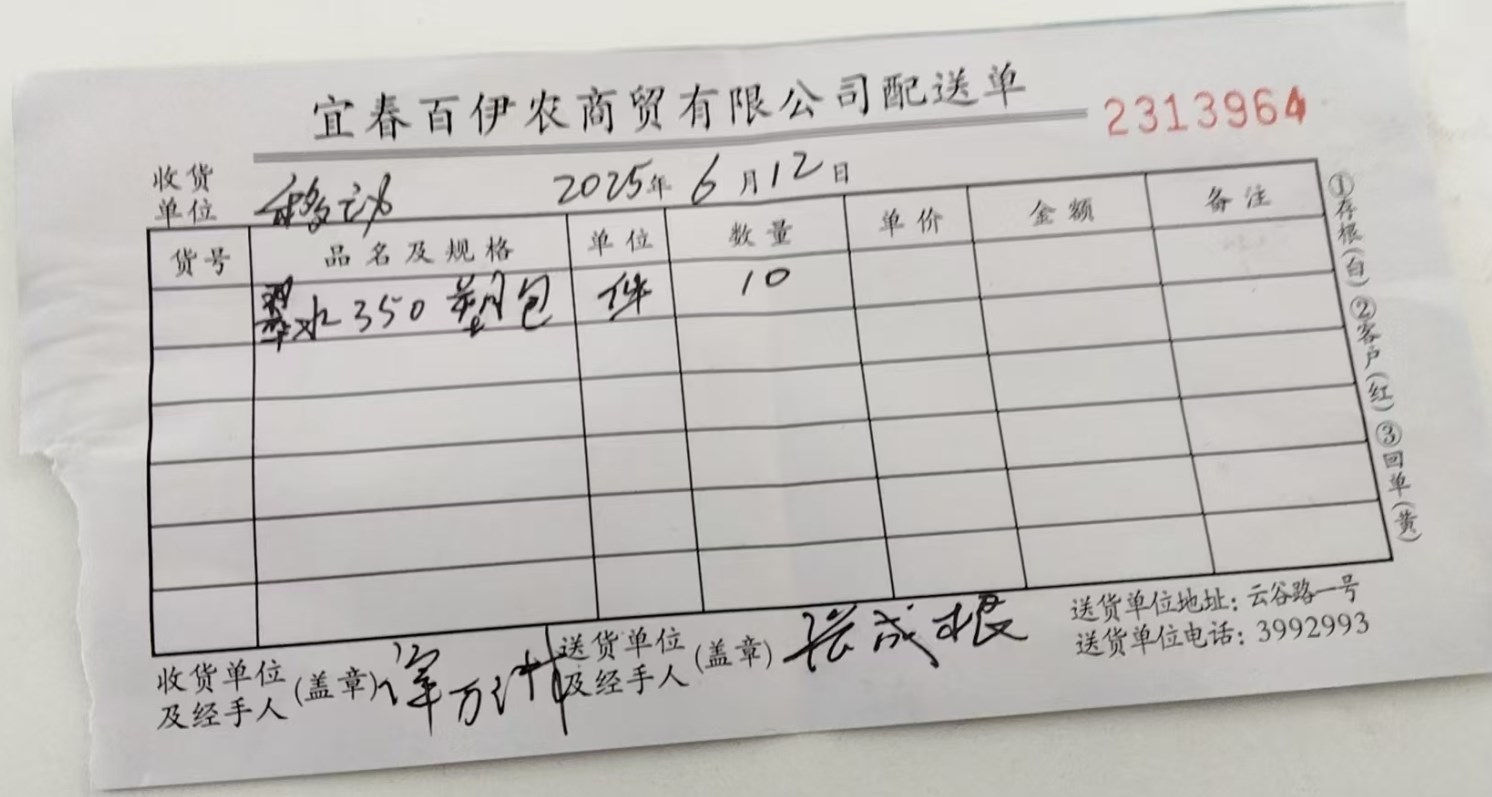 宜春百伊农商贸有限公司配送单
2313964
收货单位 移动 2025年 6月12日
货号 品名及规格 单位 数量 单价 金额 备注
翠水350塑包 件 10
①存根(白)②客户(红)③回单(黄)
收货单位及经手人(盖章)
送货单位及经手人(盖章) 张成根
送货单位地址:云谷路一号
送货单位电话:3992993